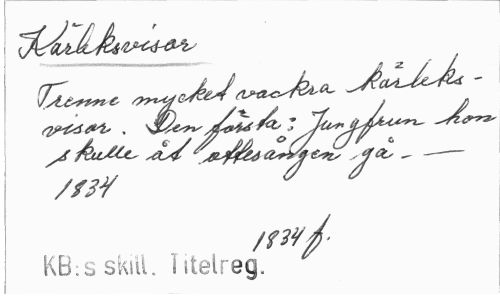 Kärleksvisor
Trenne mycket vackra kärleks-
visor. Den första: Jungfrun hon
skulle åt ottesången gå. —
1834
1834 f.
KB:s skill. Titelreg.